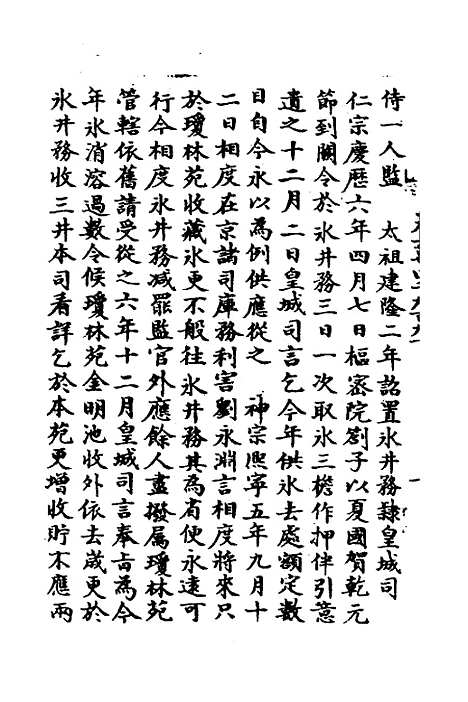 侍一人監　太祖建隆二年詔置氷井務隸皇城司
仁宗慶厯六年四月七日樞宻院劄子以夏國賀乾元
節到闕令於氷井務三日一次取氷三檐作押伴引意
遺之十二月二日皇城司言乞今年供氷去處額定數
目自今永以為例供應從之　神宗熙寧五年九月十
二日相度在京諸司庫務利害劉永淵言相度將來只
於瓊林苑收藏氷更不般往氷井務其為省便永遠可
行今相度氷井務减罷監官外應餘人盡撥属瓊林苑
管轄依舊請受從之六年十二月皇城司言奉㫖為今
年氷消溶過數令候瓊林苑金明池收外依去歳更於
氷井務收三井本司看詳乞於本苑更增收貯不應兩